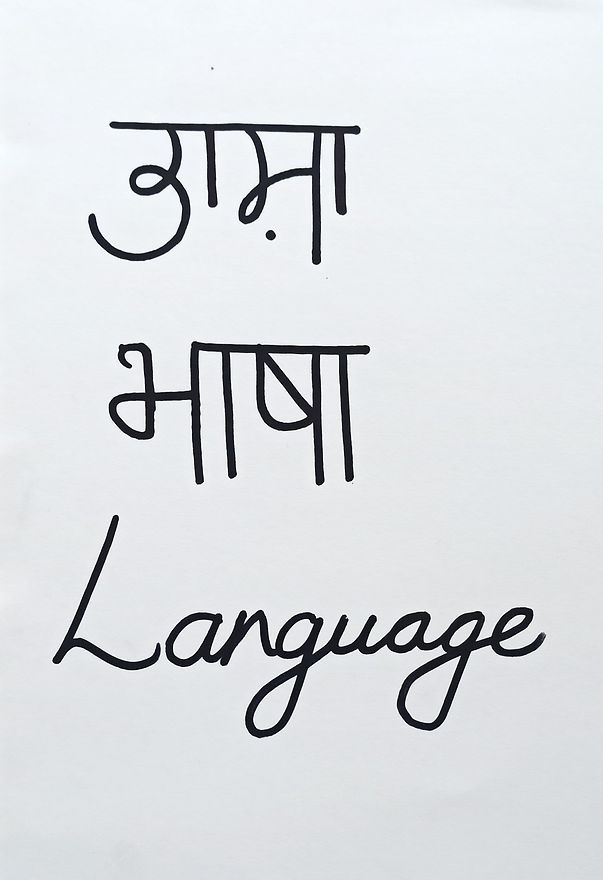 ਭਾਸ਼ਾ
भाषा
Language